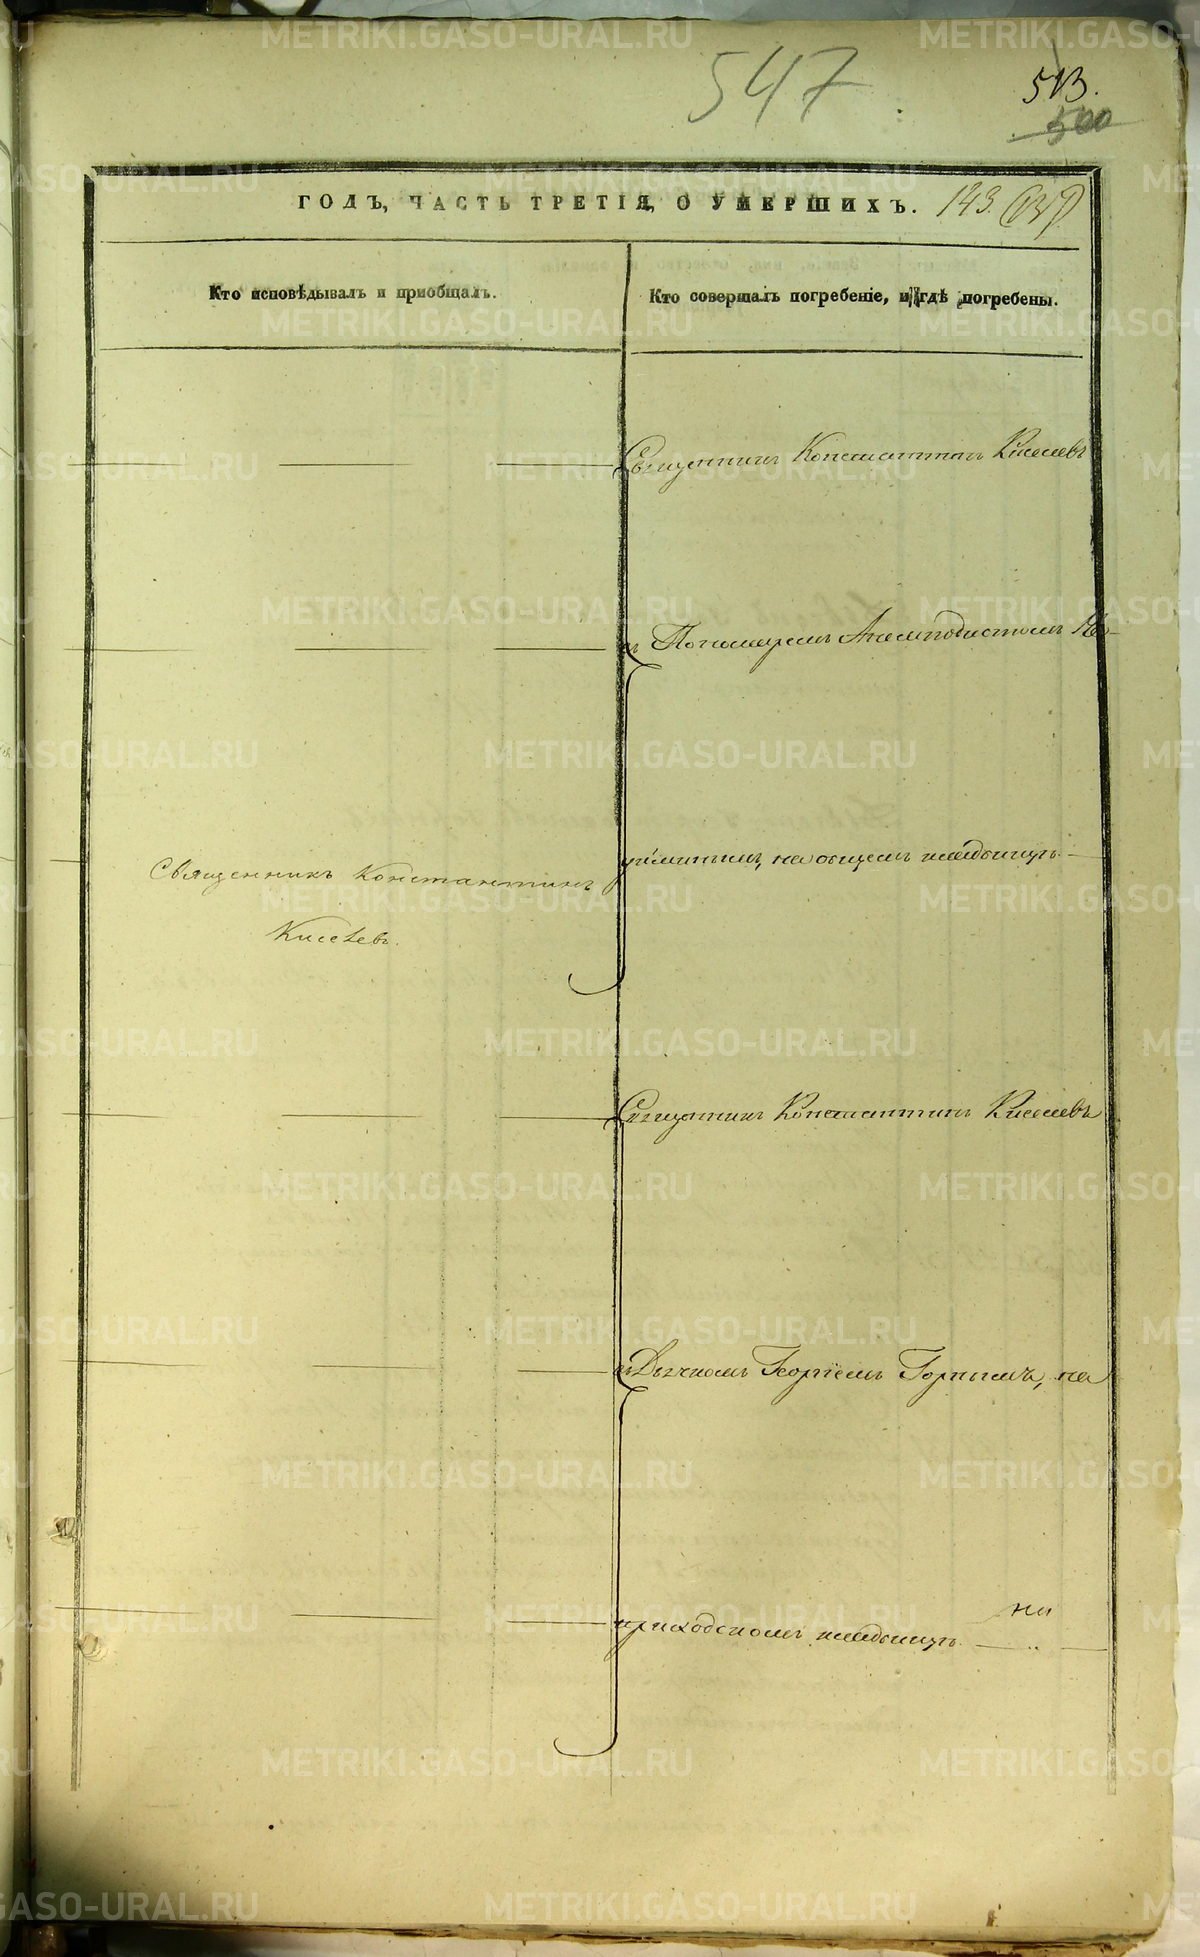 547
513.
500
ГОДЪ, ЧАСТЬ ТРЕТІЯ, О УМЕРШИХЪ. 143.
Кто исповѣдывалъ и пріобщалъ.
Кто совершалъ погребеніе, и гдѣ погребены.
Священникъ Константинъ Киселевъ
съ Пономаремъ
на общемъ кладбищѣ.
Священникъ Константинъ
Киселевъ.
Священникъ Константинъ Киселевъ
съ Дьячкомъ Георгіемъ Горнымъ, на
приходскомъ кладбищѣ
METRIKI.GASO-URAL.RU